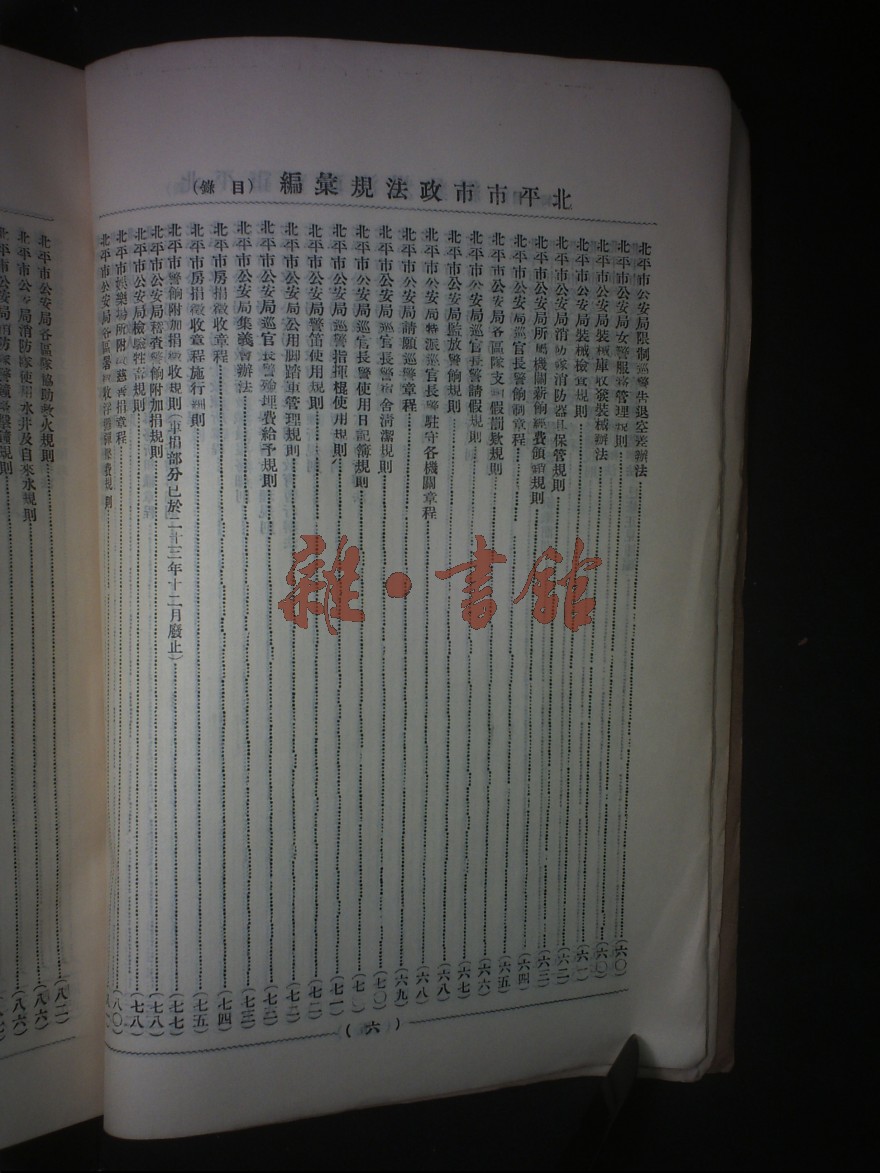 北平市市政法規彙編 (目錄)
北平市公安局限制巡警告退空差辦法 (六〇)
北平市公安局女警服務管理規則 (六〇)
北平市公安局裝械庫收發裝械辦法 (六一)
北平市公安局裝械檢查規則 (六二)
北平市公安局消防隊消防器具保管規則
北平市公安局所屬機關薪餉經費領銷規則
北平市公安局巡官長警餉制章程 (六四)
北平市公安局各區隊支 假罰款規則 (六五)
北平市公安局巡官長警請假規則 (六六)
北平市公安局監放警餉規則 (六七)
北平市公安局特派巡官長警駐守各機關章程 (六八)
北平市公安局請願巡警章程 (六九)
北平市公安局巡官長警宿舍清潔規則 (七〇)
北平市公安局巡官長警使用日記簿規則
北平市公安局巡警指揮棍使用規則 (七一)
北平市公安局警笛使用規則 (七二)
北平市公安局公用脚踏車管理規則 (七二)
北平市公安局巡官長警殮埋費給予規則 (七三)
北平市公安局集義會辦法 (七三)
北平市房捐徵收章程 (七四)
北平市房捐徵收章程施行細則 (七五)
北平市警餉附加捐徵收規則(車捐部分已於二十三年十二月廢止) (七七)
北平市公安局稽查警餉附加捐規則 (七八)
北平市公安局檢驗牲畜規則 (七八)
北平市娛樂場所附 慈善捐章程 (八〇)
北平市公安局各區署 收 費規則
(六)
北平市公安局各區隊協助救火規則 (八二)
北平市公安局消防隊使用水井及自來水規則 (八六)
北平市公安局消防隊警 規則
雜·書館